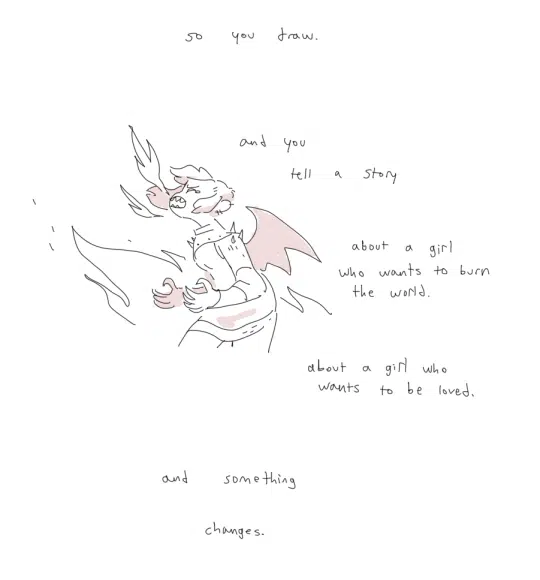 so you draw.
and you
tell a story
about a girl
who wants to burn
the world.
about a girl who
wants to be loved.
and something
changes.